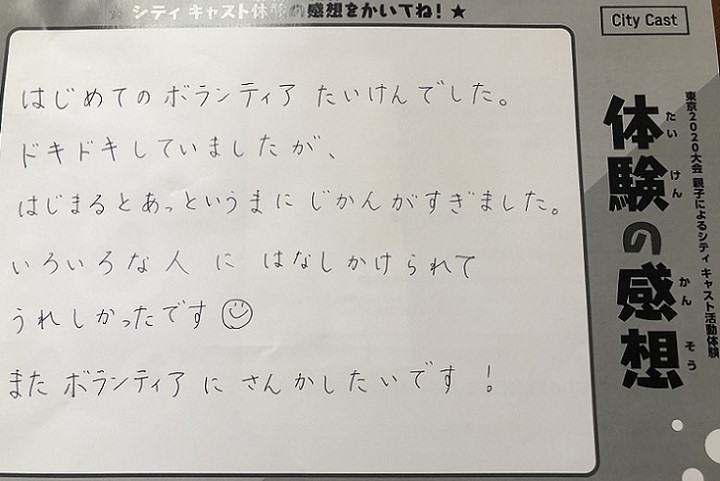 ★ シティ キャスト体験の感想をかいてね！★
City Cast
はじめての ボランティア たいけんでした。
ドキドキしていましたが、
はじまるとあっというまに じかんがすぎました。
いろいろな人 に はなしかけられて
うれしかったです☺
また ボランティア に さんかしたいです ！
東京2020大会 親子によるシティ キャスト活動体験
体験の感想
たい けん かん そう